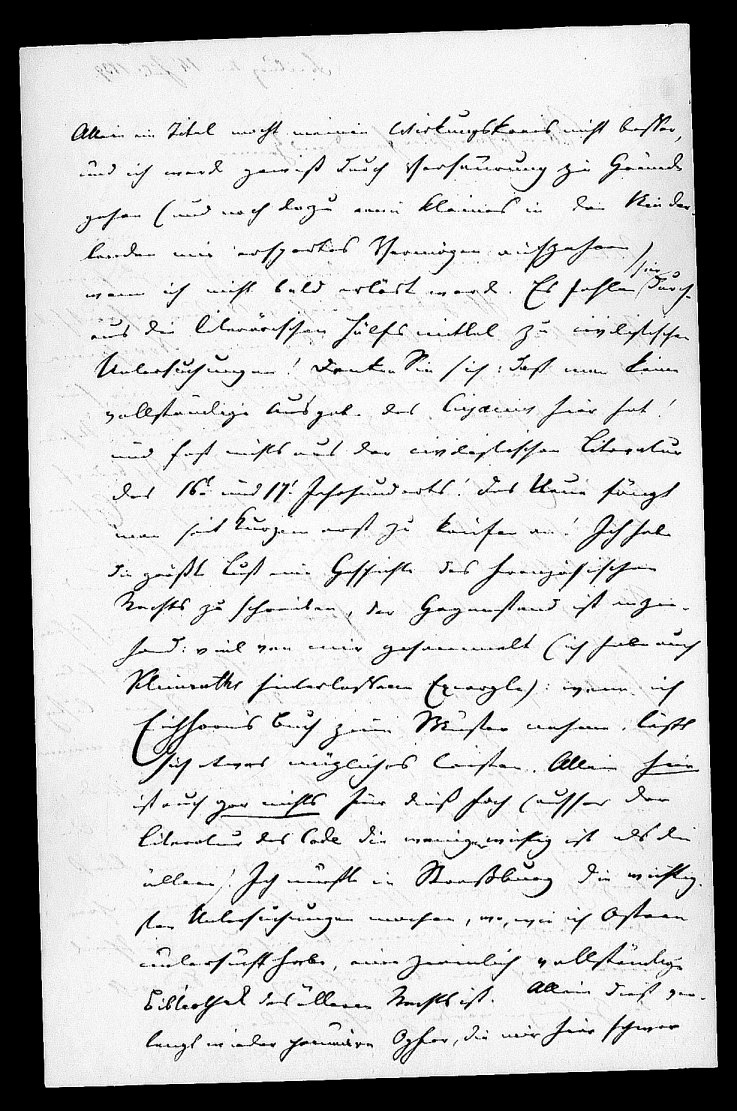 Allein ein Titel macht meinen Wirkungskreis nicht besser,
und ich werde gewiß durch Versäurung zu Grunde
gehen (und noch dazu mein kleines in den Nieder-
landen mir erspartes Vermögen aufzehren)
wenn ich nicht bald erlöst werde. Es fehlen hier durch-
aus die literärischen Hülfsmittel zu civilistischen
Untersuchungen! Denken Sie sich: daß man keine
vollständige Ausgabe des Cujacius hier hat!
und fast nichts aus der civilistischen Literatur
des 16. und 17. Jahrhunderts! Das Neue fängt
man seit Kurzem erst zu kaufen an! Ich habe
die größte Lust eine Geschichte des französischen
Rechts zu schreiben, der Gegenstand ist anzie-
hend: viel von mir gesammelt (ich habe auch
Klimraths hinterlassene Exemple): wenn ich
Eichhorns Buch zum Muster nehme, läßt
sich etwas mögliches leisten. Allein hier
ist auch gar nichts für dieß Fach (ausser der
Literatur des Code die weniger wichtig ist als die
ältere)! Ich müßte in Straßburg die wichtig-
sten Untersuchungen machen, wo, wie ich Ostern
untersucht habe, eine ziemlich vollständige
Bibliothek des älteren Rechts ist. Allein dieß ver-
langt wieder pecuniäre Opfer, die mir hier schwer